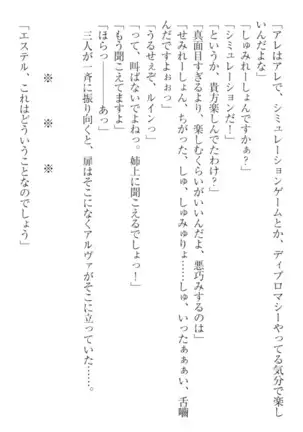 「アレはアレで、シミュレーションゲームとか、ディプロマシーやってる気分で楽し
いんだよな」
「しゅみれーしょんですかぁ？」
「シミュレーションだ！」
「というか、貴方楽しんでたわけ？」
「真面目すぎるより、楽しむくらいがいいんだよ、悪巧みするのは」
「せみれーしょん、ちがった、しゅ、しゅみゅりょ……しゅ、いったぁぁぁい、舌嚙
んだですよぉぉっ」
「うるせぇぞ、ルインっ」
「って、叫ばないでよねっ。姉上に聞こえるでしょっ！」
「もう聞こえてますよ」
「ほらっ――あっ」
三人が一斉に振り向くと、扉はそこになくアルヴァがそこに立っていた……。
※　※　※
「エステル、これはどういうことなのでしょう」